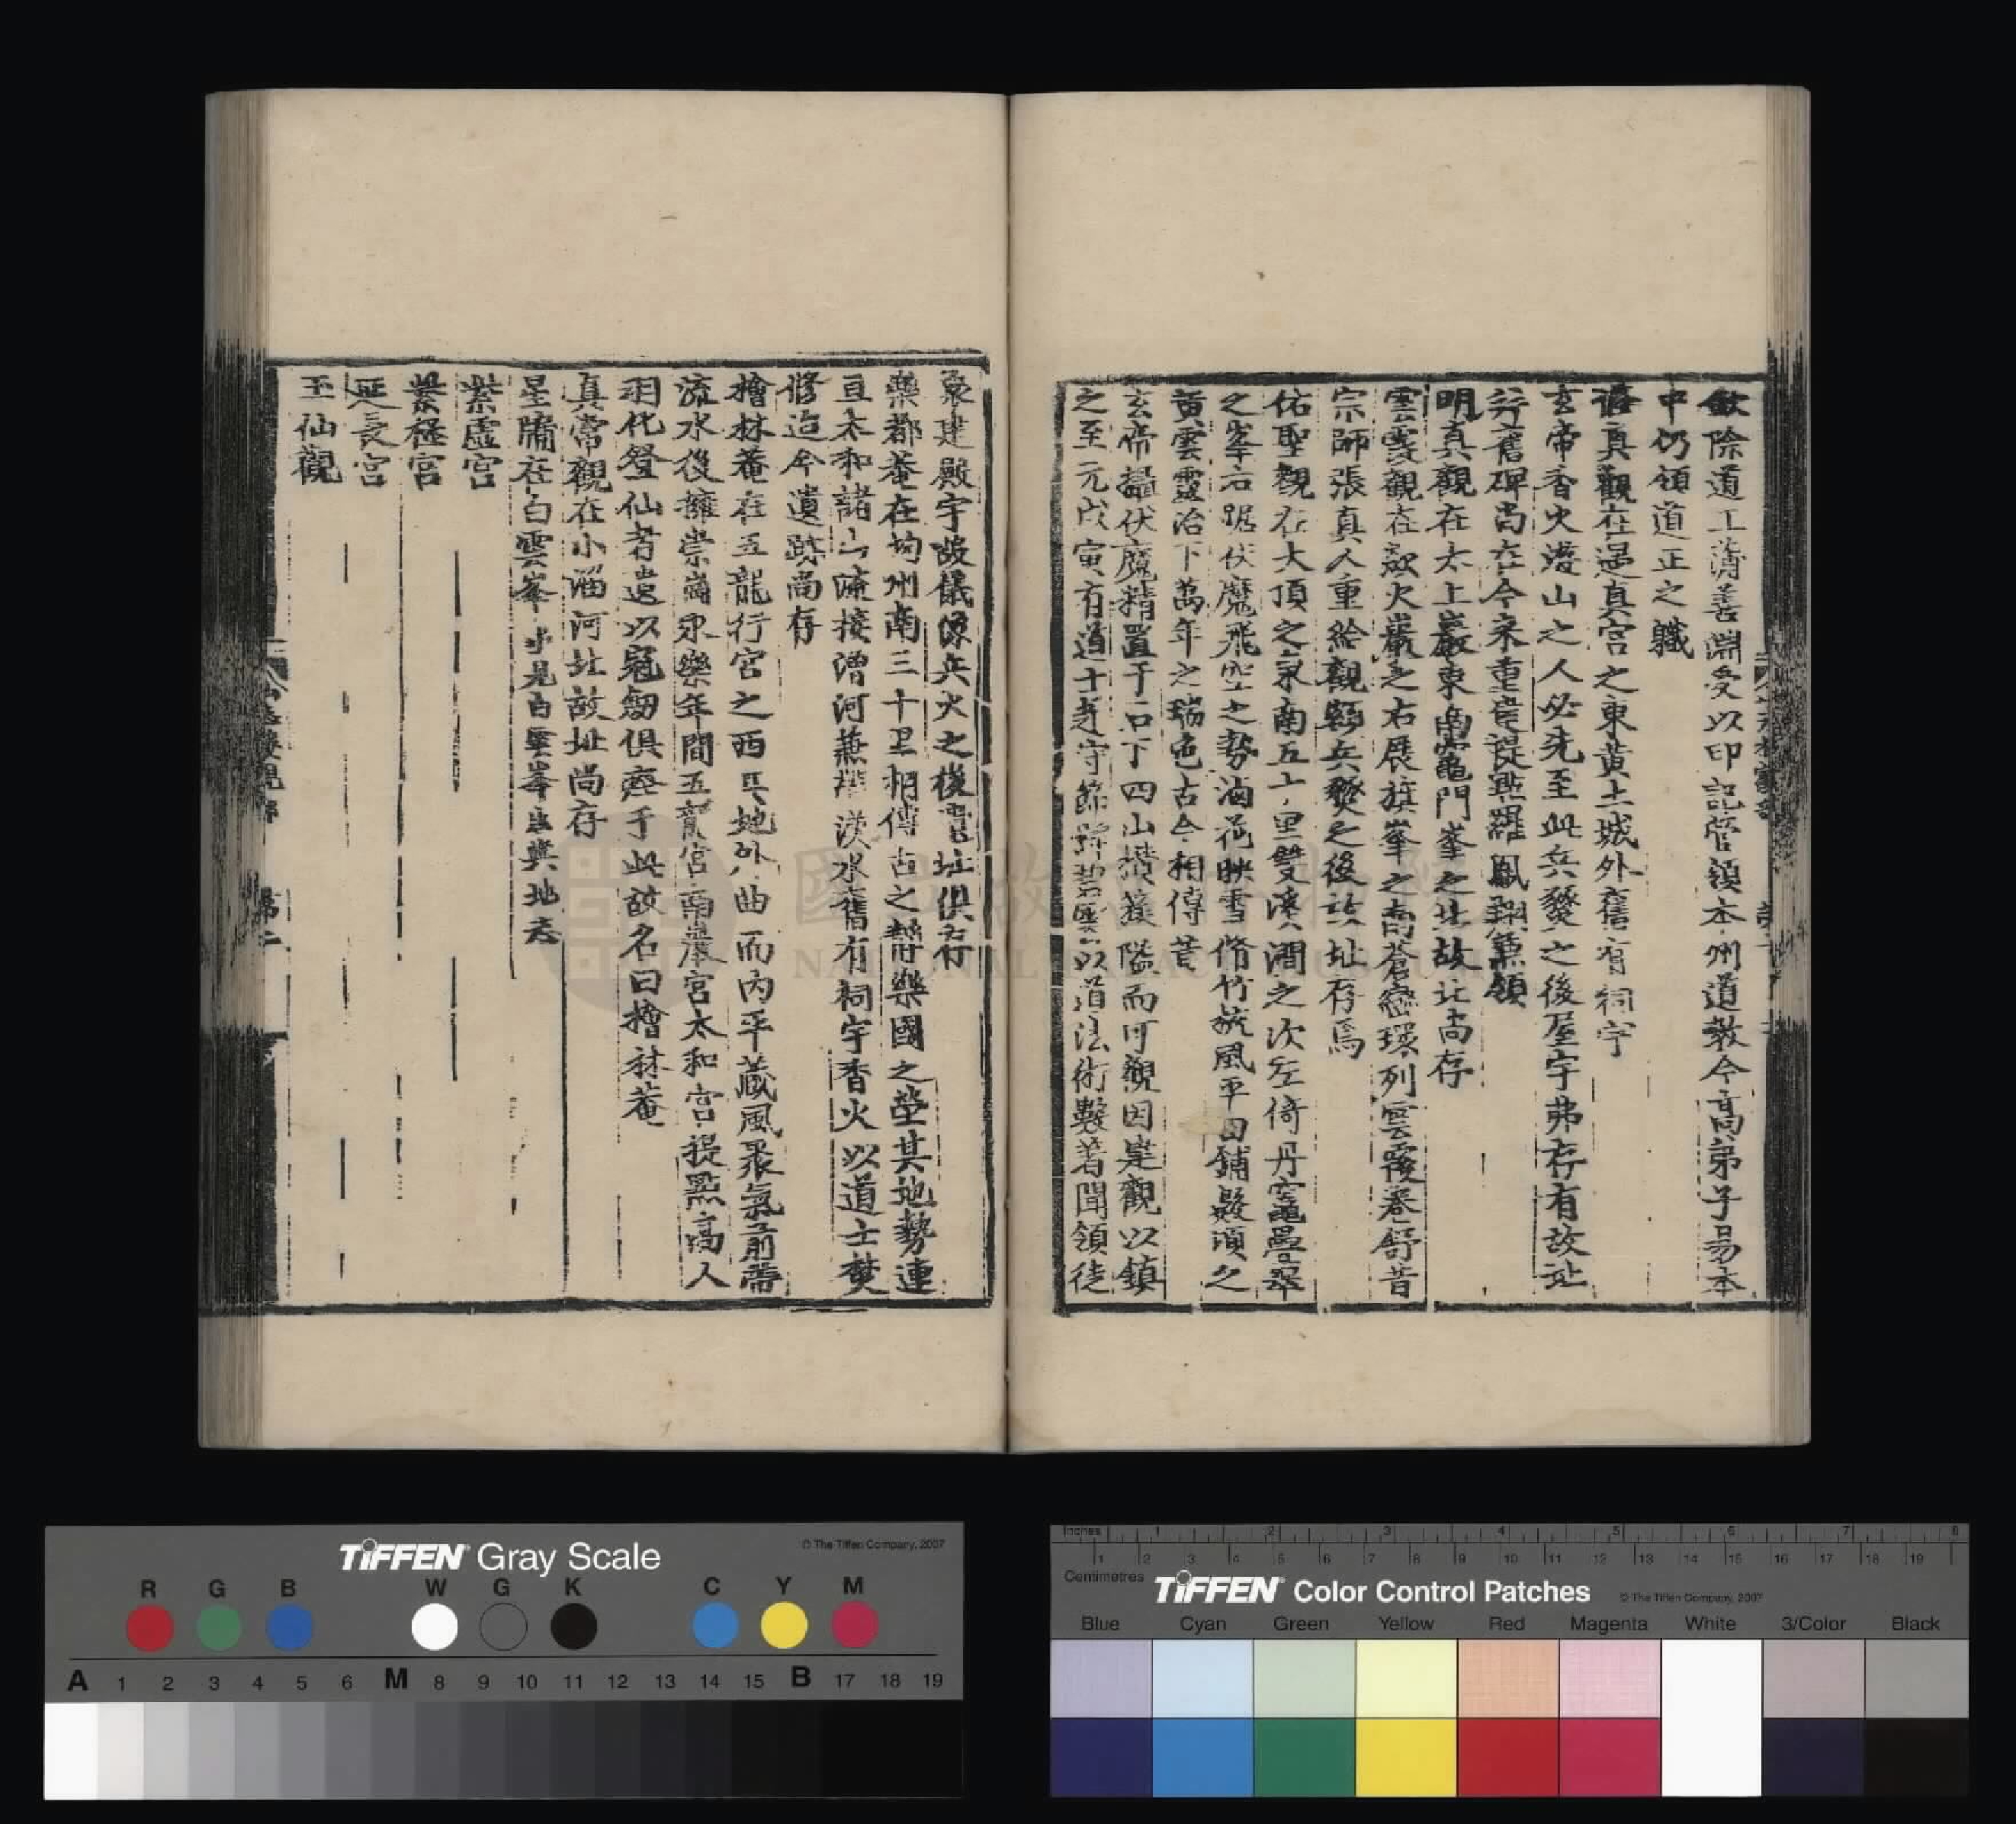 欽除道工蒲善淵受以印記管領本州道教今高弟子昜本
中仍領道正之職
真觀在遇真宮之東黃土城外舊有祠宇
玄帝香火遊山之人必先至此兵燹之後屋宇弗存有故址
并舊碑尚在今宋重
明真觀在太上巖東南竈門峯之北故址尚存
雲霞觀在歘火巖之右展旗峯之南蒼巒環列雲霞卷舒昔
宗師張真人重給觀縣兵燹之後故址存焉
佑聖觀在大頂之東南五十里雙溪澗之次左倚丹竈疊翠
之峯右踞伏魔飛空之勢滷花映雪脩竹梳風平田鋪毯頃之
黃雲靈治下萬年之瑞色古今相傳昔
玄帝攝伏魔精置于石下四山攢簇隘而可觀因崖觀以鎮
之至元戊寅有道士 守節 以道法術數著聞領徒
衆建殿宇設儀像兵火之後舊址俱存
樂都菴在均州南三十里相傳古之靜樂國之塋其地勢連
亘太和諸山 接漕河蕪 漢水舊有祠宇香火以道士樊
修造今遺跡尚存
檜林菴在五龍行宮之西其地外曲而內平藏風聚氣前帶
流水後擁崇崗永樂年間五龍宮南巖宮太和宮提點高人
羽化登仙者遺以冠劒俱瘞于此故名曰檜林菴
真常觀在小淄河北故址尚存
星牖在白雲峯 見白雲峯出輿地志
紫虛宮
紫極宮
延長宮
玉仙觀
國立故宮博物院
NATIONAL PALACE MUSEUM
TIFFEN Gray Scale
© The Tiffen Company, 2007
R G B W G K C Y M
A 1 2 3 4 5 6 M 8 9 10 11 12 13 14 15 B 17 18 19
Inches 1 2 3 4 5 6 7 8
1 2 3 4 5 6 7 8 9 10 11 12 13 14 15 16 17 18 19
Centimetres
TIFFEN Color Control Patches
© The Tiffen Company, 2007
Blue Cyan Green Yellow Red Magenta White 3/Color Black